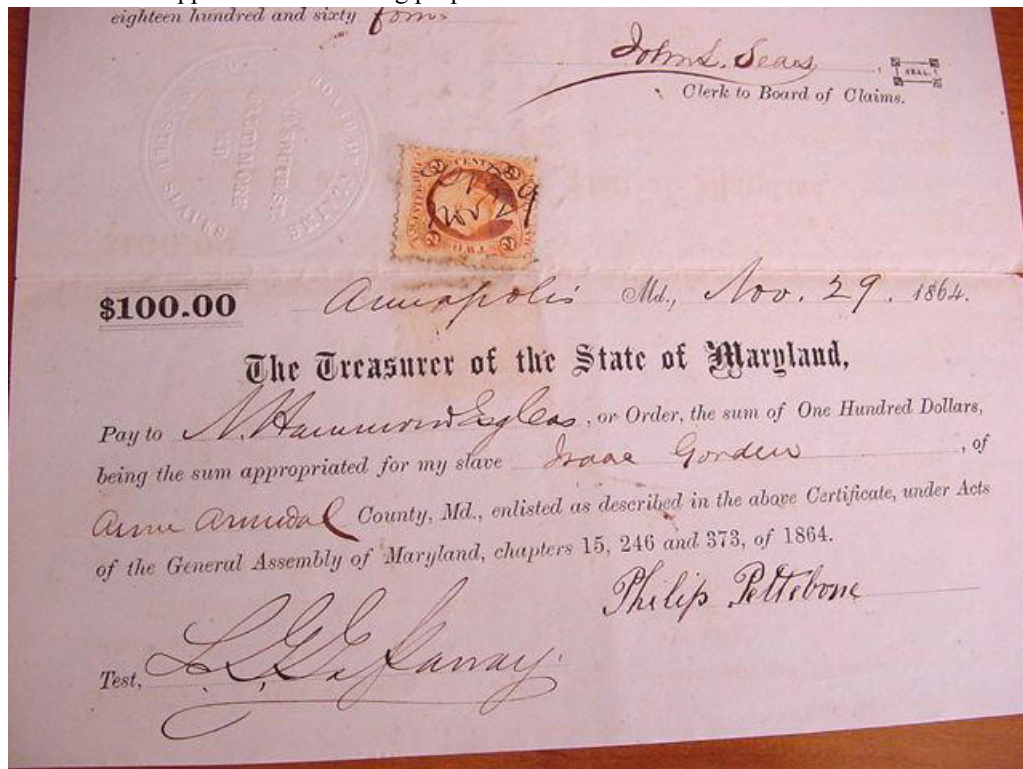 eighteen hundred and sixty four
John S. Sears
SEAL.
Clerk to Board of Claims.
BOARD OF CLAIMS
BALTIMORE
MD
SLAVES
CENTS
Nov 29
TWO
$100.00 Annapolis Md., Nov. 29. 1864.
The Treasurer of the State of Maryland,
Pay to N. Hammond Esq Cas, or Order, the sum of One Hundred Dollars,
being the sum appropriated for my slave Isaac Gorden, of
Anne Arundal County, Md., enlisted as described in the above Certificate, under Acts
of the General Assembly of Maryland, chapters 15, 246 and 373, of 1864.
Philip Pettebone
Test,